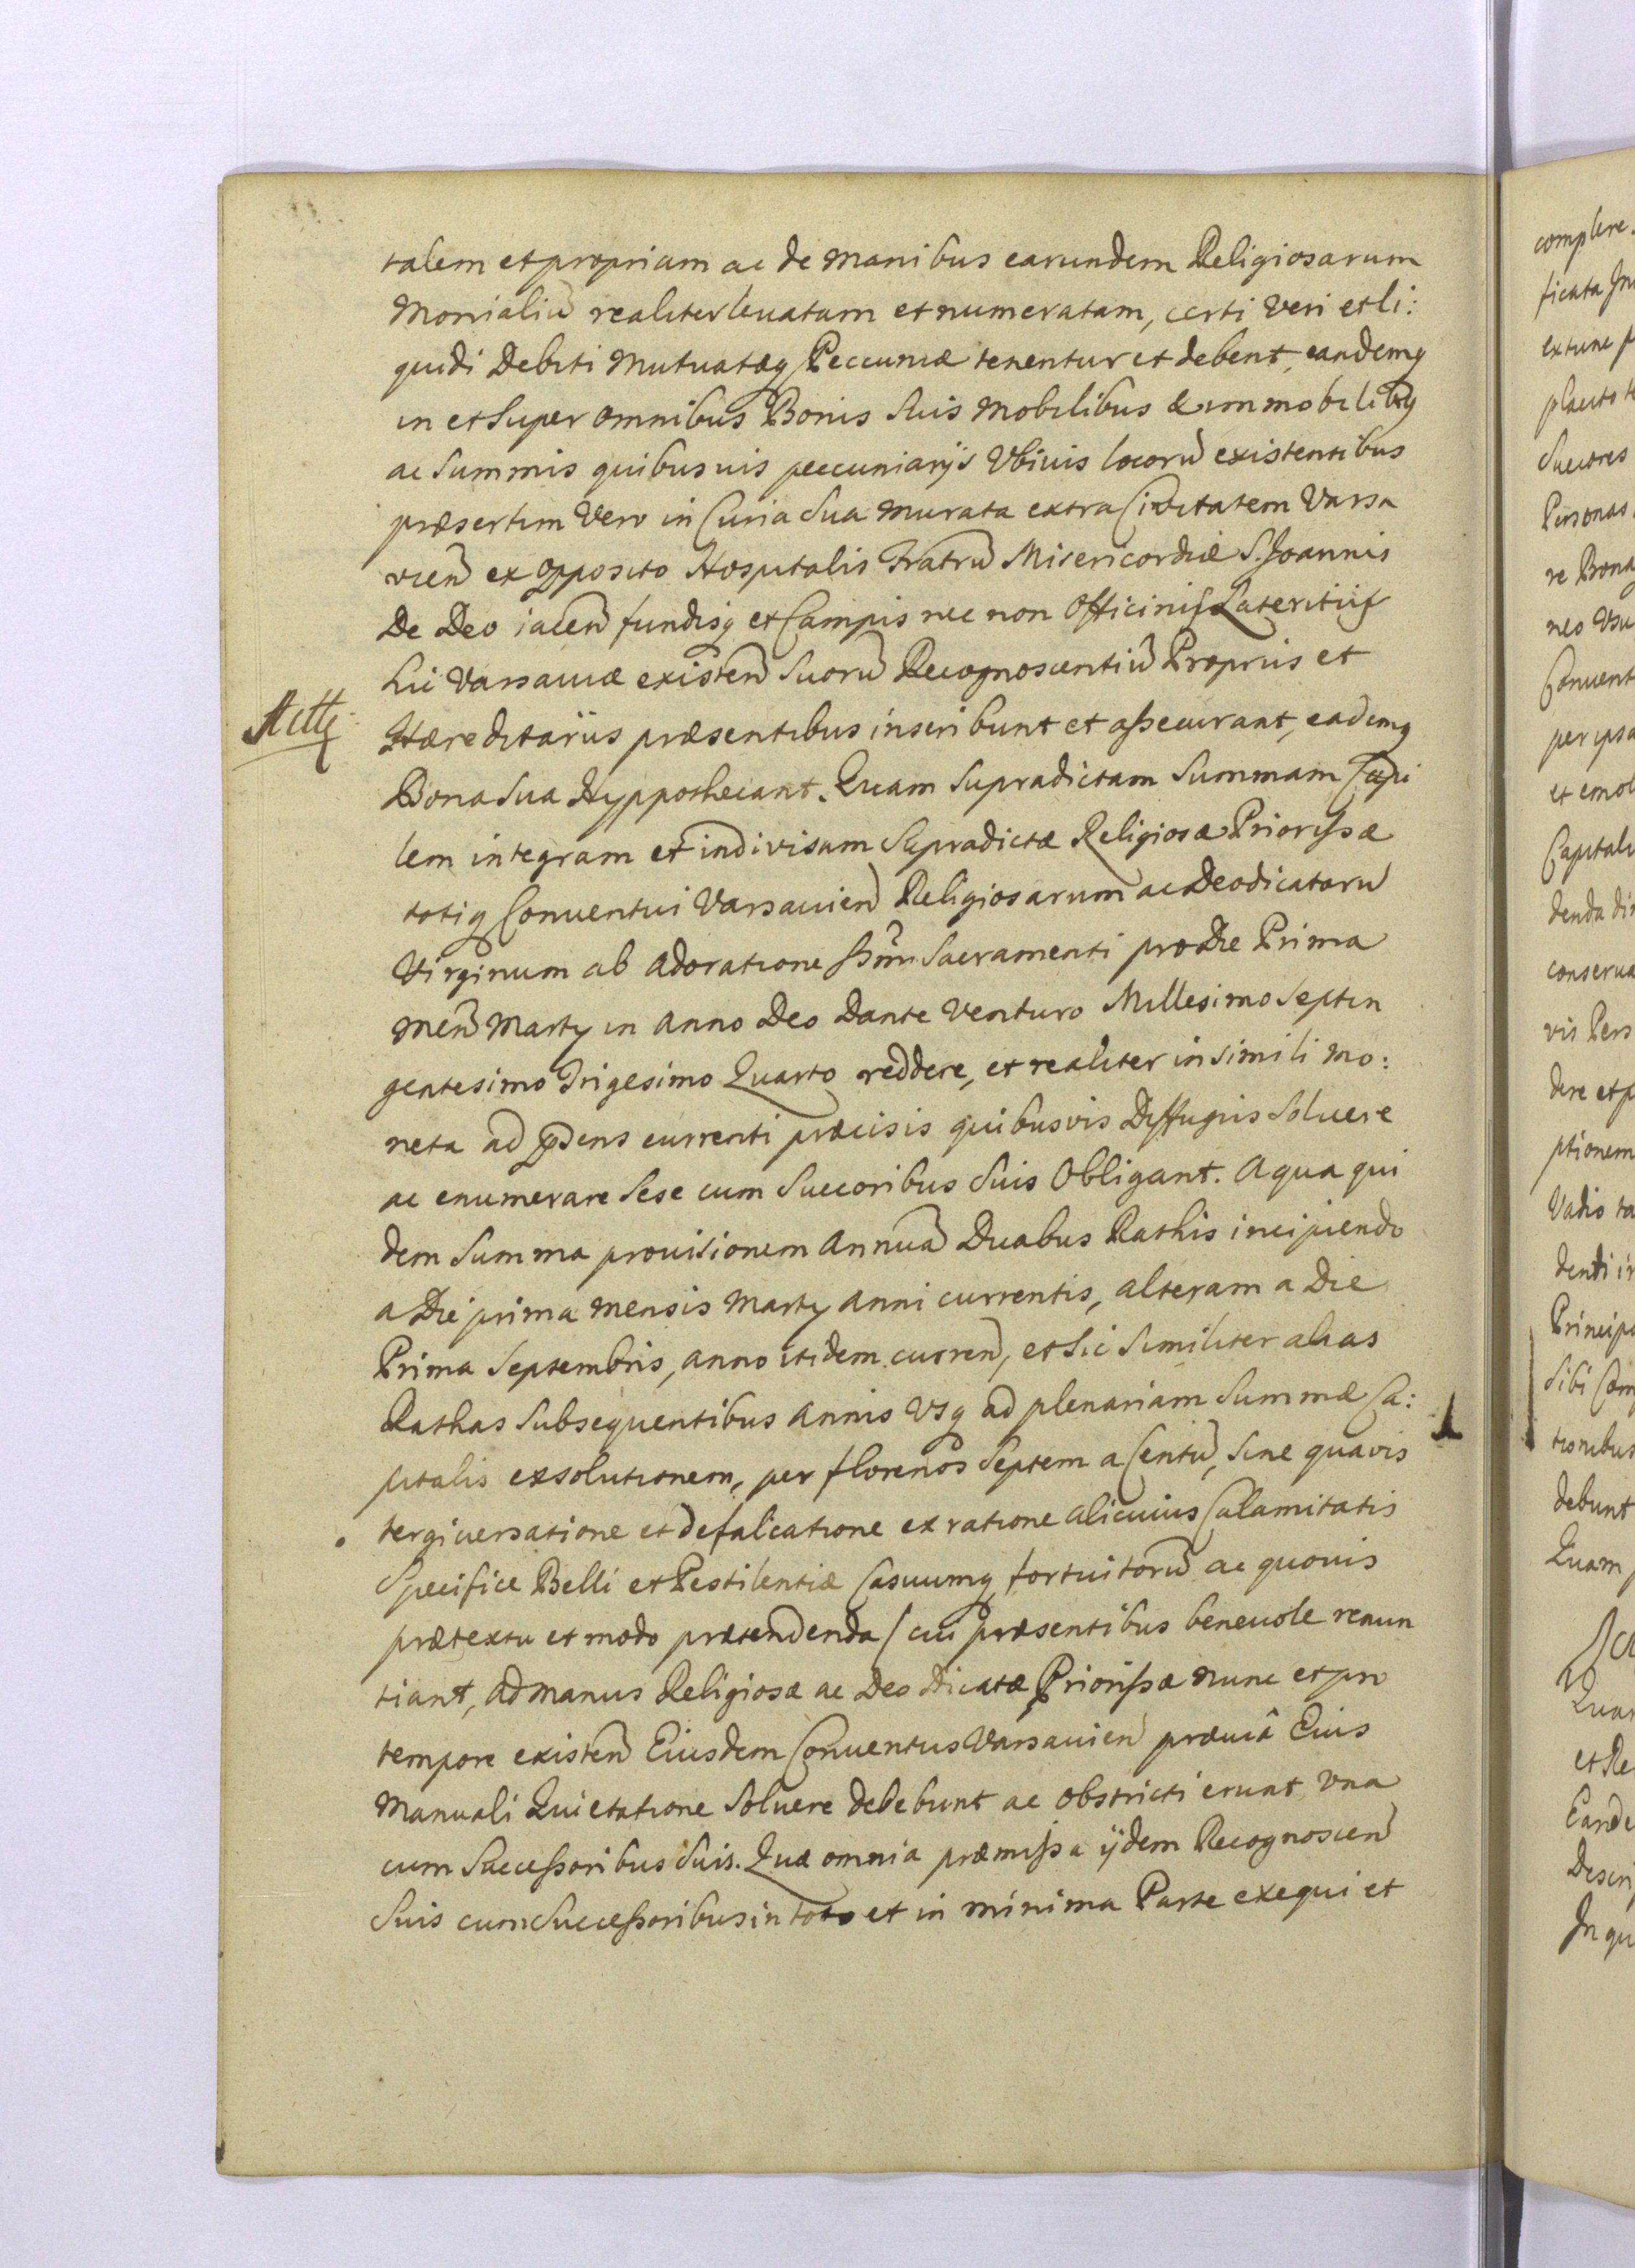 talem et propriam ac de Manibus earundem Religiosarum
Monialiũ realiter levatam et numeratam, certi Veri et li:
quidi Debiti Mutuatæq Peccuniæ tenentur et debent, eandemq
in et super omnibus Bonis Suis Mobilibus & immobilibq
ac Summis quibusuis peccuniarÿs Vbiuis locorũ existentibus
præsertim Vero in Curia Sua Murata extra Civitatem Varsa
vien̄ ex Opposito Hospitalis Fratrũ Misericordiæ S. Joannis
De Deo iacen̄ fundisq et Campis nec non Officinis Lateritiis
hic Varsauiæ existen̄ Suorũ Recognoscentiũ Propriis et
Hæreditariis præsentibus inscribunt et assecurant, eademq
Bona Sua Hyppothecant. Quam Supradictam Summam Capi
lem integram et indivisam Supradictæ Religiosæ Priorissæ
totiq Conuentui Varsauien̄ Religiosarum ac Deodicatarũ
Virginum ab Adoratione SSm̃i Sacramenti pro Die Prima
Men̄ Martÿ in Anno Deo Dante Venturo Millesimo Septin
gentesimo Trigesimo Quarto reddere, et realiter in simili Mo:
neta ad p̃sens currenti præcisis quibusvis Diffugiis Soluere
ac enumerare Sese cum Succoribus Suis Obligant. A qua qui
dem Summa prouisionem Annuã Duabus Rathis incipiendo
a Die prima Mensis Martÿ Anni currentis, alteram a Die
Prima Septembris, Anno itidem curren̄, et Sic Similiter alias
Rathas Subsequentibus Annis Vsq ad plenariam Summæ Ca:
pitalis exsolutionem, per florenos Septem a Centũ, Sine quavis
tergiuersatione et defalcatione ex ratione alicuius Calamitatis
Specifice Belli et Pestilentiæ Casuumq fortuitorũ ac quouis
prætextu et modo prætendenda / cui præsentibus beneuole renun
tiant, ad Manus Religiosæ ac Deo Dicatæ Priorissæ nunc et pro
tempore existen̄ Eiusdem Conuentus Varsauien̄ præuiâ Eius
Manuali Quietatione Soluere debebunt ac obstricti erunt Vna
cum Successoribus Suis. Quæ omnia præmissa ÿdem Recognoscen̄
Suis cum Successoribus in toto et in minima Parte exequi et
complere.
ficata
extunc
placito
Succores
Personas
re Bona
neo Vsu
Conuent
per ipsa
et emol
Capitali
denda
conserua
vis Pers
dere et p
ptionem
Vadio ta
denti
Principa
Sibi Com
tionibus
debunt
Quam
et Re
Eande
Descri
In qu